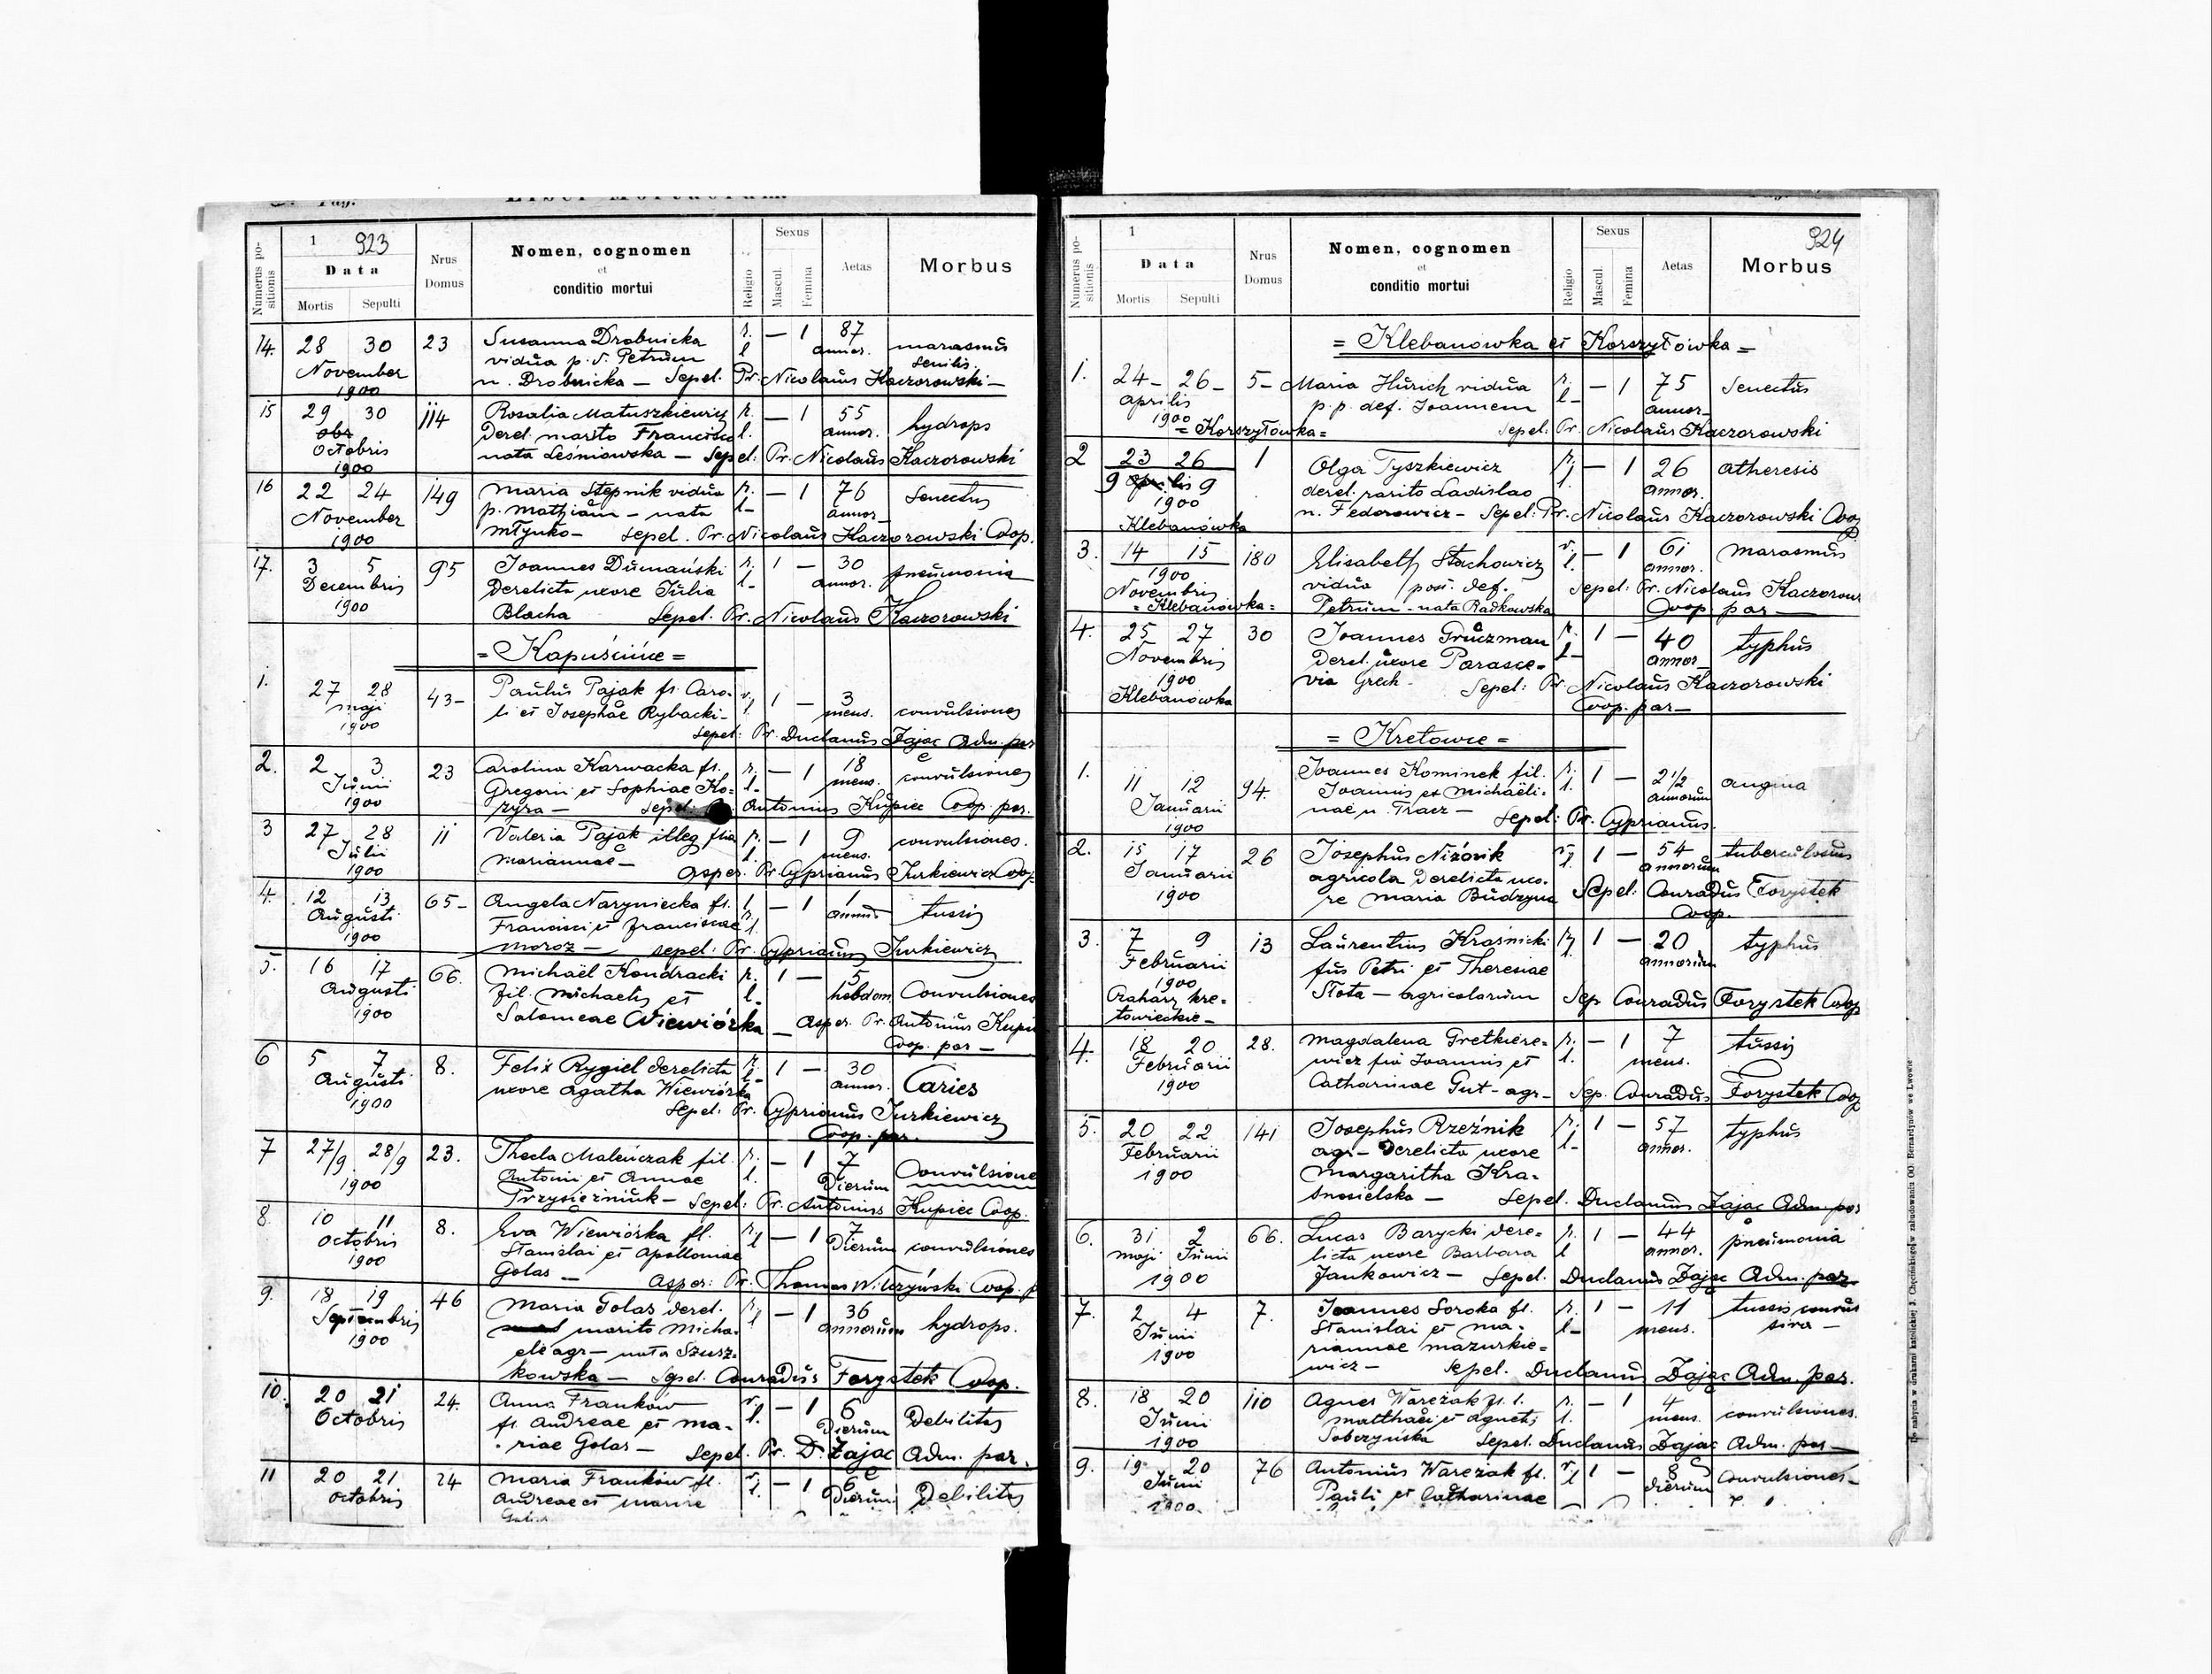 Pag.
Liber Mortuorum.
Numerus positionis
1 923
Data
Mortis Sepulti
Nrus Domus
Nomen, cognomen
et
conditio mortui
Religio
Sexus
Mascul. Femina
Aetas
Morbus
14. 28 30 23 Susanna Drobnicka r. — 1 87 marasmus
November vidua p. d. Petrum l annor. senilis
1900 n. Drobnicka — Sepel. Pr. Nicolaus Kaczorowski —
15 29 30 114 Rosalia Matuszkiewicz r. — 1 55 hydrops
Octobris derel. marito Francisco l. annor.
1900 nata Leśniowska — Sepel: Pr. Nicolaus Kaczorowski
16 22 24 149 Maria Stepnik vidua r. — 1 76 Senectus
November p. Mathiam — nata l- annor—
1900 Młynko — sepel. Pr. Nicolaus Kaczorowski Coop.
17. 3 5 95 Joannes Dumański r. 1 — 30 pneumonia
Decembris derelicta uxore Julia l- annor.
1900 Blacha Sepel. Pr. Nicolaus Kaczorowski
= Kapuścińce =
1. 27 28 43- Paulus Pajak fs. Caro- r. 1 — 3
maji li et Josephae Rybacki- l. mens. convulsiones
1900 sepel: Pr. Duclanus Zając Adm. par
2. 2 3 23 Carolina Karwacka fl. r. — 1 18 convulsiones
Junii Gregorii et Sophiae Ko= l- mens.
1900 zyra — sepel Antonius Kupiec Coop. par.
3 27 28 11 Valeria Pajak illeg. filia r. — 1 9 convulsiones.
Julii Mariannae — l. mens.
1900 Asper. Pr. Cyprianus Jurkiewicz Coop
4. 12 13 65- Angela Naryniecka fl. l. — 1 1 tussis
Augusti Francisci et Franciscae r. annus
1900 Moroz — sepel: Pr. Cyprianus Jurkiewicz
5. 16 17 66. Michaël Kondracki r. 1 — 5
Augusti fil. Michaelis et l- hebdom. Convulsiones
1900 Salomeae Wiewiórka — Asper. Pr. Antonius Kupi
Coop. par —
6 5 7 8. Felix Rygiel derelicta r. 1 — 30
Augusti uxore Agatha Wiewiórka l- annor. Caries
1900 Sepel: Pr. Cyprianus Jurkiewicz
Coop. par.
7 27/9 28/9 23. Thecla Maleńczak fil. r. — 1 7 Convulsione
1900 Antoni et Annae l. Dierum
Przysiężniuk — Sepel: Pr. Antonius Kupiec Coop.
8. 10 11 8. Eva Wiewiórka fl. r. — 1 7
Octobris Stanislai et Apolloniae l Dierum convulsiones
1900 Golas — Asper: Pr. Thomas Wilczyński Coop. p
9. 18 19 46 Maria Golas derel. r. — 1 36
Septembris marito Micha- l annorum hydrops.
1900 ele agr — nata Szusz-
kowska — Sepel. Conradus Forystek Coop.
10. 20 21 24. Anna Franków r. — 1 6
Octobris fl. Andreae et Ma- l. Dierum Debilitas
riae Golas — Sepel. Pr. D. Zając Adm. par.
11 20 21 24 Maria Franków fl. r. — 1 6
octobris Andreae et Mariae l. Dierum Debilitas
Golas
Numerus positionis
1 924
Data
Mortis Sepulti
Nrus Domus
Nomen, cognomen
et
conditio mortui
Religio
Sexus
Mascul. Femina
Aetas
Morbus
= Klebanówka et Korszyłówka =
1. 24- 26- 5- Maria Hurich vidua r. — 1 75 Senectus
Aprilis p. p. def. Joannem l- annor—
1900 = Korszyłówka = Sepel: Pr. Nicolaus Kaczorowski
2 23 26 1 Olga Tyszkiewicz r. — 1 26 atheresis
9 9 derel. rarito Ladislao l. annor.
1900 n. Fedorowicz — Sepel: Pr. Nicolaus Kaczorowski Coop
Klebanówka
3. 14 15 180 Elisabeth Stachowicz r. — 1 61 marasmus
1900 vidua / post. def. l. annor.
Novembris Petrum - nata Radkowska Sepel: Pr. Nicolaus Kaczorow
= Klebanówka = Coop. par —
4. 25 27 30 Joannes Gruczman r. 1 — 40 typhus
Novembris derel. uxore Parasce= l- annor—
1900 via Grech - Sepel: Pr. Nicolaus Kaczorowski
Klebanówka Coop. par —
= Kretowce =
1. 11 12 94. Joannes Kominek fil. r. 1 — 2 1/2 angina
Januarii Joannis et Michaëli- l. annorum
1900 nae n. Tracz — Sepel: Pr. Cyprianus.
2. 15 17 26 Josephus Niżnik r. 1 — 54 tuberculosus
Januarii agricola derelicta uxo- l. annorum
1900 re Maria Budzyna Sepel: Conradus Forystek
Coop.
3. 7 9 13 Laurentius Kraśnicki r. 1 — 20 typhus
Februarii fus Petri et Theresiae l. annorum
1900 Słota — agricolarum Sep Conradus Forystek Coop
kre=
towieckie —
4. 18 20 28. Magdalena Gretkiere= r. — 1 7 tussis
Februarii wicz fia Joannis et l. mens.
1900 Catharinae Gut - agr— Sep. Conradus Forystek Coop
5. 20 22 141 Josephus Rzeźnik r. 1 — 57 typhus
Februarii agr — Derelicta uxore l- annor.
1900 Margaritha Kra-
snosielska — Sepel. Duclanus Zając Adm. par
6. 31 2 66. Lucas Barycki dere- r. 1 — 44 pneumonia
maji Junii licta uxore Barbara l annor.
1900 Jankowicz — Sepel. Duclanus Zając Adm. par.
7. 2 4 7. Joannes Soroka fl. r. 1 — 11 tussis convul
Junii Stanislai et Ma- l- mens. siva —
1900 riannae Mazurkie=
wicz — Sepel. Duclanus Zając Adm. par.
8. 18 20 110 Agnes Wareżak fs. l. r. — 1 4
Junii Matthaei et Agnetis l. mens. convulsiones.
1900 Sobczyńska Sepel. Duclanus Zając Adm. par —
9. 19 20 76 Antonius Wareżak fl. r. 1 — 8 convulsiones —
Junii Pauli et Catharinae l dierum
1900
Do nabycia w drukarni katolickiej J. Chęcińskiego w zabudowaniu OO. Bernardynów we Lwowie